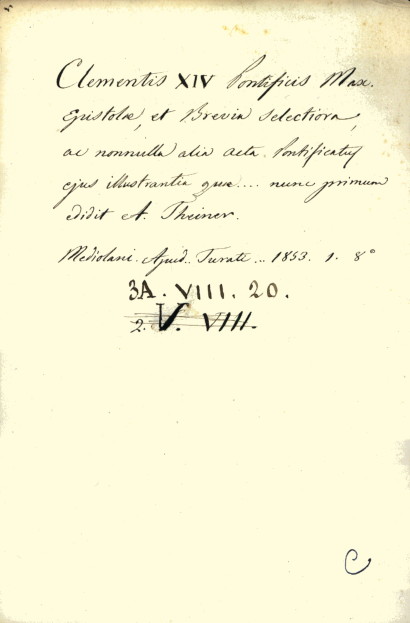 Clementis XIV Pontificis Max.
Epistolæ, et Brevia selectiora,
ac nonnulla alia acta Pontificatus
ejus illustrantia quæ.... nunc primum
edidit A. Theiner.
Mediolani. Apud.. Turati... 1853. 1. 8°
3A. VIII. 20.
2. V. VIII.
C